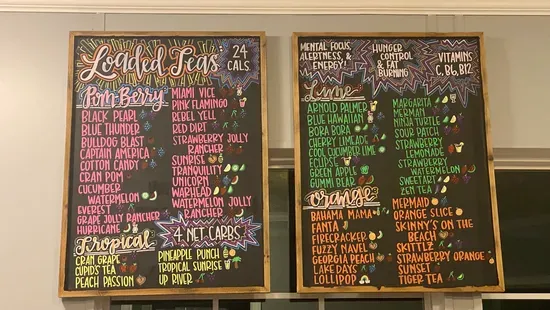 Loaded Teas:
24 CALS
Pom-Berry
BLACK PEARL
BLUE THUNDER
BULLDOG BLAST
CAPTAIN AMERICA
COTTON CANDY
CRAN POM
CUCUMBER
WATERMELON
EVEREST
GRAPE JOLLY RANCHER
HURRICANE
MIAMI VICE
PINK FLAMINGO
REBEL YELL
RED DIRT
STRAWBERRY JOLLY
RANCHER
SUNRISE
TRANQUILITY
UNICORN
WARHEAD
WATERMELON JOLLY
RANCHER
4 NET CARBS
Tropical
CRAN GRAPE
CUPID'S TEA
PEACH PASSION
PINEAPPLE PUNCH
TROPICAL SUNRISE
UP RIVER
MENTAL FOCUS,
ALERTNESS, &
ENERGY!
HUNGER
CONTROL
& FAT
BURNING
VITAMINS
C, B6, B12
Lime
ARNOLD PALMER
BLUE HAWAIIAN
BORA BORA
CHERRY LIMEADE
COOL CUCUMBER LIME
ECLIPSE
GREEN APPLE
GUMMI BEAR
MARGARITA
MERMAN
NINJA TURTLE
SOUR PATCH
STRAWBERRY
LEMONADE
STRAWBERRY
WATERMELON
SWEETART
ZEN TEA
Orange
BAHAMA MAMA
FANTA
FIRECRACKER
FUZZY NAVEL
GEORGIA PEACH
LAKE DAYS
LOLLIPOP
MERMAID
ORANGE SLICE
SKINNY'S ON THE
BEACH
SKITTLZ
STRAWBERRY ORANGE
SUNSET
TIGER TEA